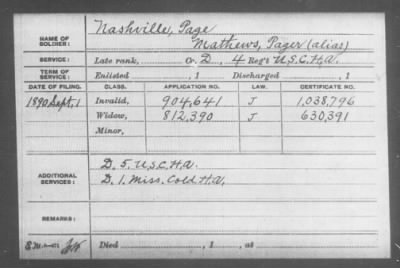 NAME OF SOLDIER: Nashville, Page
Mathews, Pager (alias)
SERVICE: Late rank, Co. D, 4 Reg't U.S.C.H.A.
TERM OF SERVICE: Enlisted , 1 Discharged , 1
DATE OF FILING. CLASS. APPLICATION NO. LAW. CERTIFICATE NO.
1890 Sept, 1 Invalid, 904,641 J 1,038,796
Widow, 812,390 J 630,391
Minor,
ADDITIONAL SERVICES: D. 5. U.S.C.H.A.
D. 1. Miss. Cold H.A.
REMARKS:
Died , 1 , at